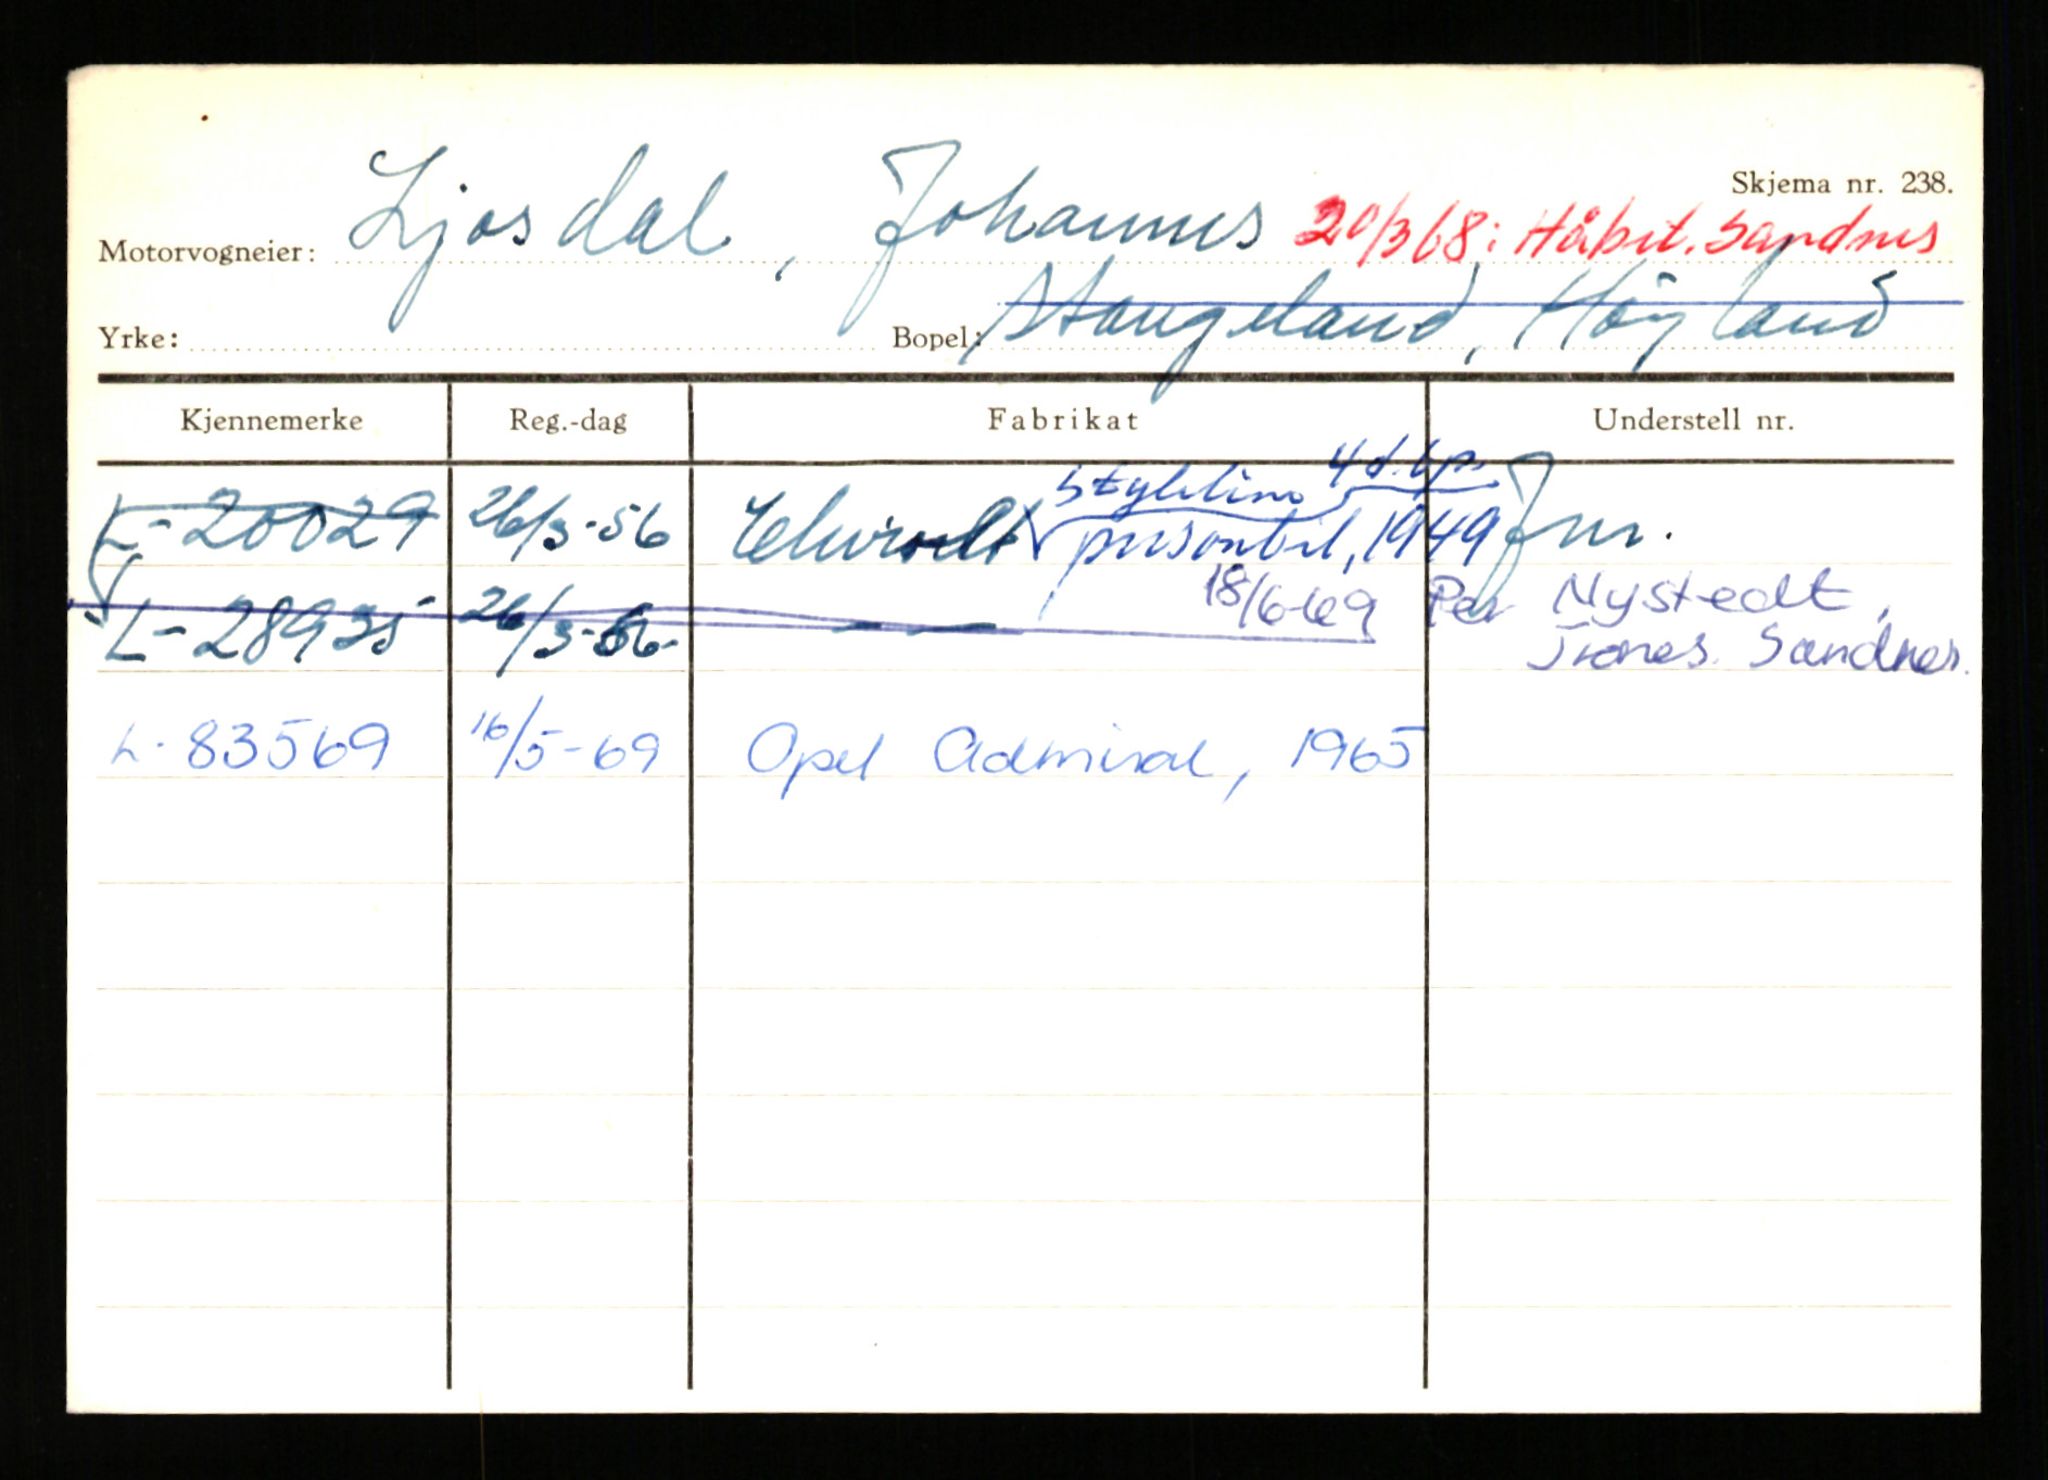 Skjema nr. 238.
Motorvogneier: Ljosdal, Johannes 20/3 68: Håbet. Sandnes
Yrke: Bopel: Stangeland, Høyland
Kjennemerke Reg.-dag Fabrikat Understell nr.
Styleline 4 d.
L-20029 26/3-56 Chevrolet personbil, 1949 Jnr.
18/6-69 Per Nystedt,
L-28935 26/3-56- — — Trones. Sandnes.
L-83569 16/5-69 Opel Admiral, 1965